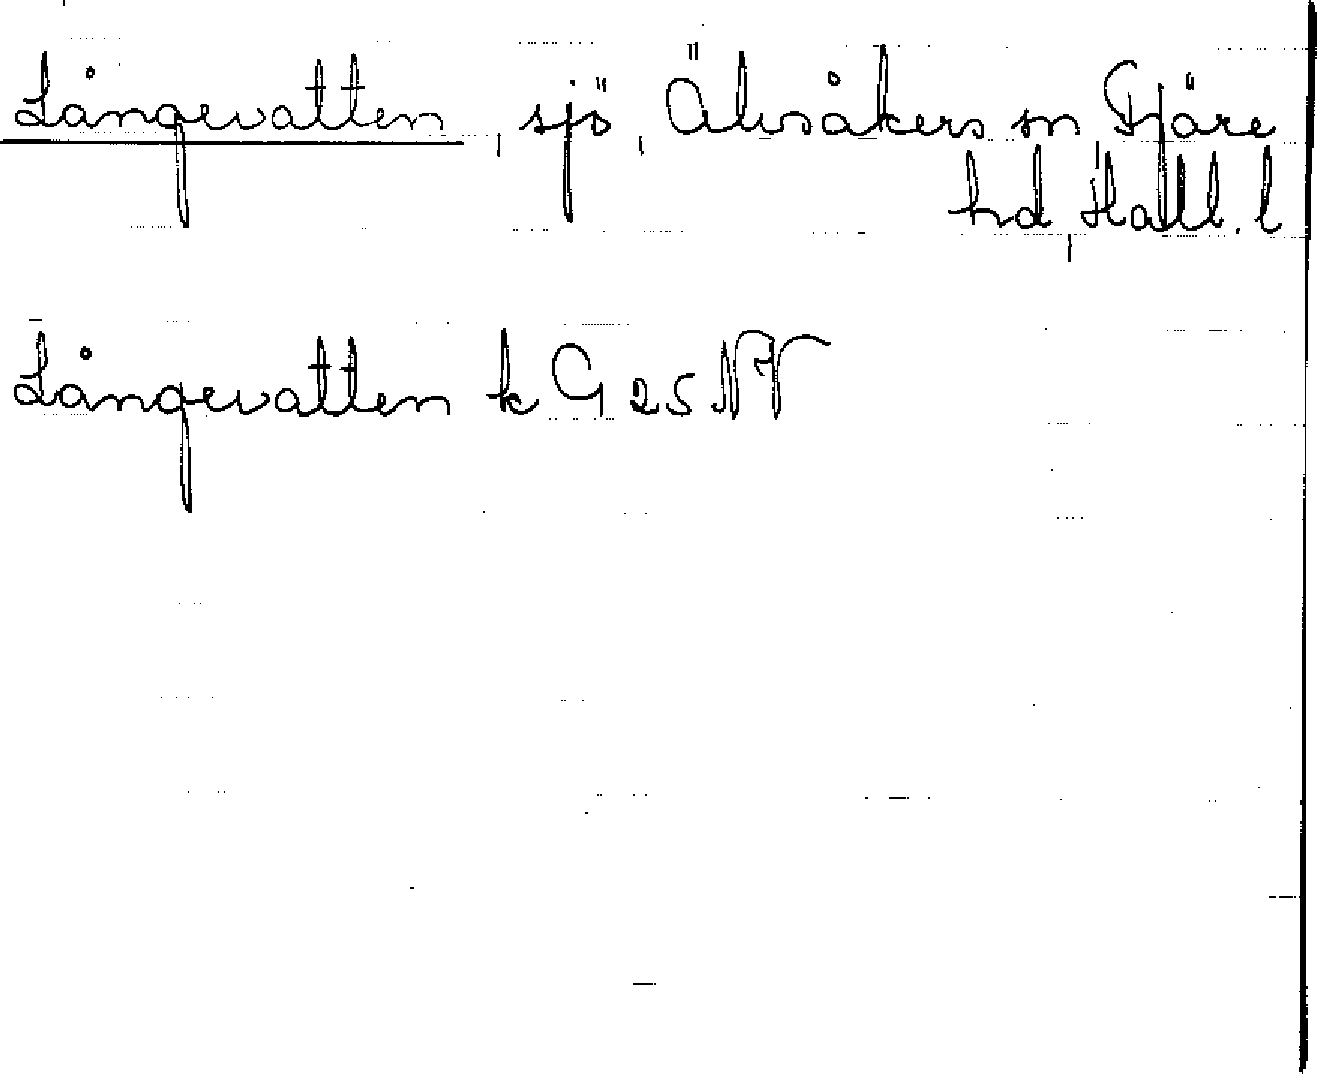 Långevatten, sjö, Älvsåkers sn Fjäre
hd, Hall. l
Långevatten k G 25 NV